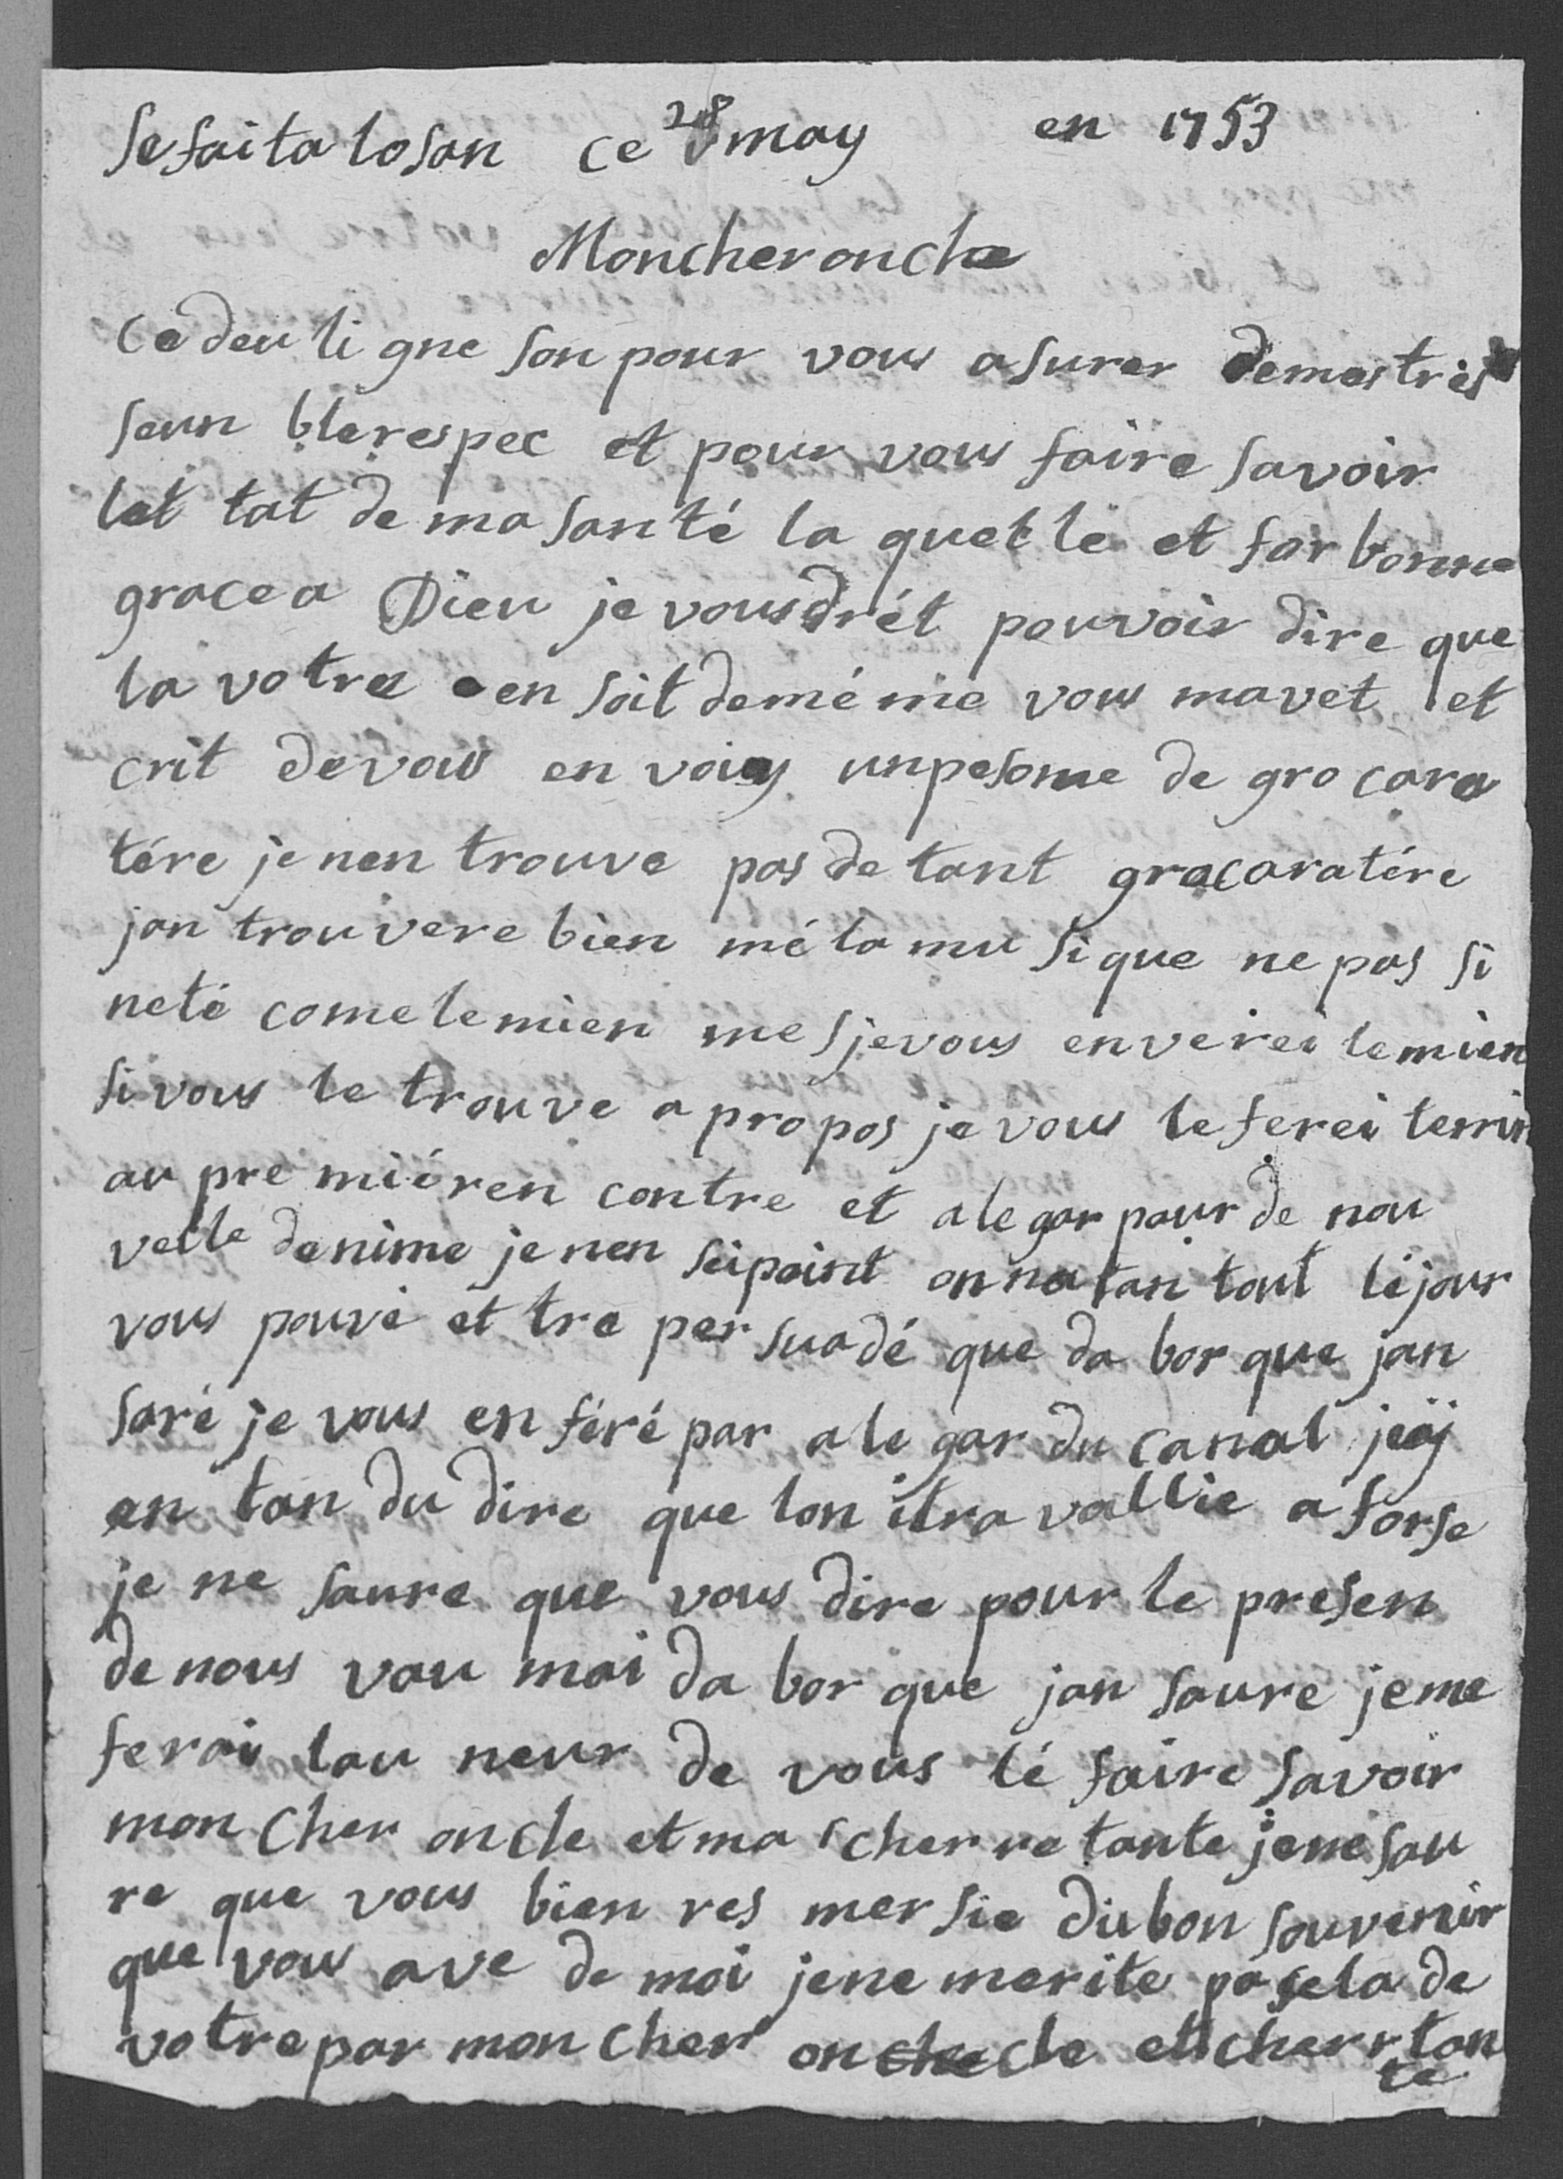 Sefaita losan ce 28 may en 1753
Moncheronche
Ce deu li gne son pour vous asurer demestrés
seun blerespec et pour vous faire savoir
let tat de ma santé la quelle et for bonne
gracea Dieu je vousdrét pouvoir dire que
la votre en soit demé me vous mavet et
crit devous en voiy unpesome de gro cara
tére je nen trouve pas de tant gracaratére
jan trouvere bien mé la mu sique ne pas si
neté come le mien mes je vous enverei le mien
si vous le trouve a propos je vous le ferei terrin
au pre miéren contre et alegar pour de nou
velle denime je nen seipoint onnatan tout léjour
vous pouvé et tre per suadé que da bor que jan
saré je vous en féré par ale gar du canal jeaj
an tan du dire que lon itra vallie a forse
je ne saure que vous dire pour le presen
de nous vau mai da bor que jan saure jeme
ferai lau neur de vous lé faire savoir
mon cher oncle et ma cher re tante jene sau
re que vous bien res mer sie dubon souvenir
que vous ave de moi jene merite pasela de
votrepar mon cher oncle et cherr tan
te